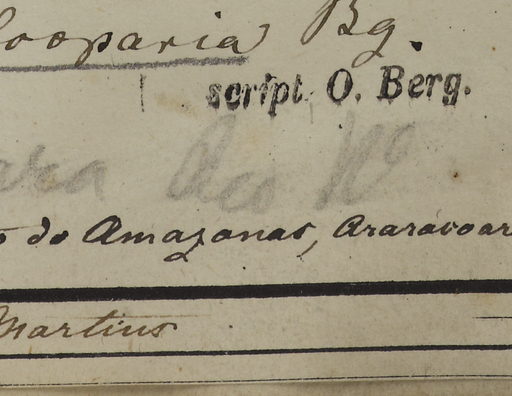 ooparia Bg.
script. O. Berg.
ara
do Amazonas, Araracoar
Martius